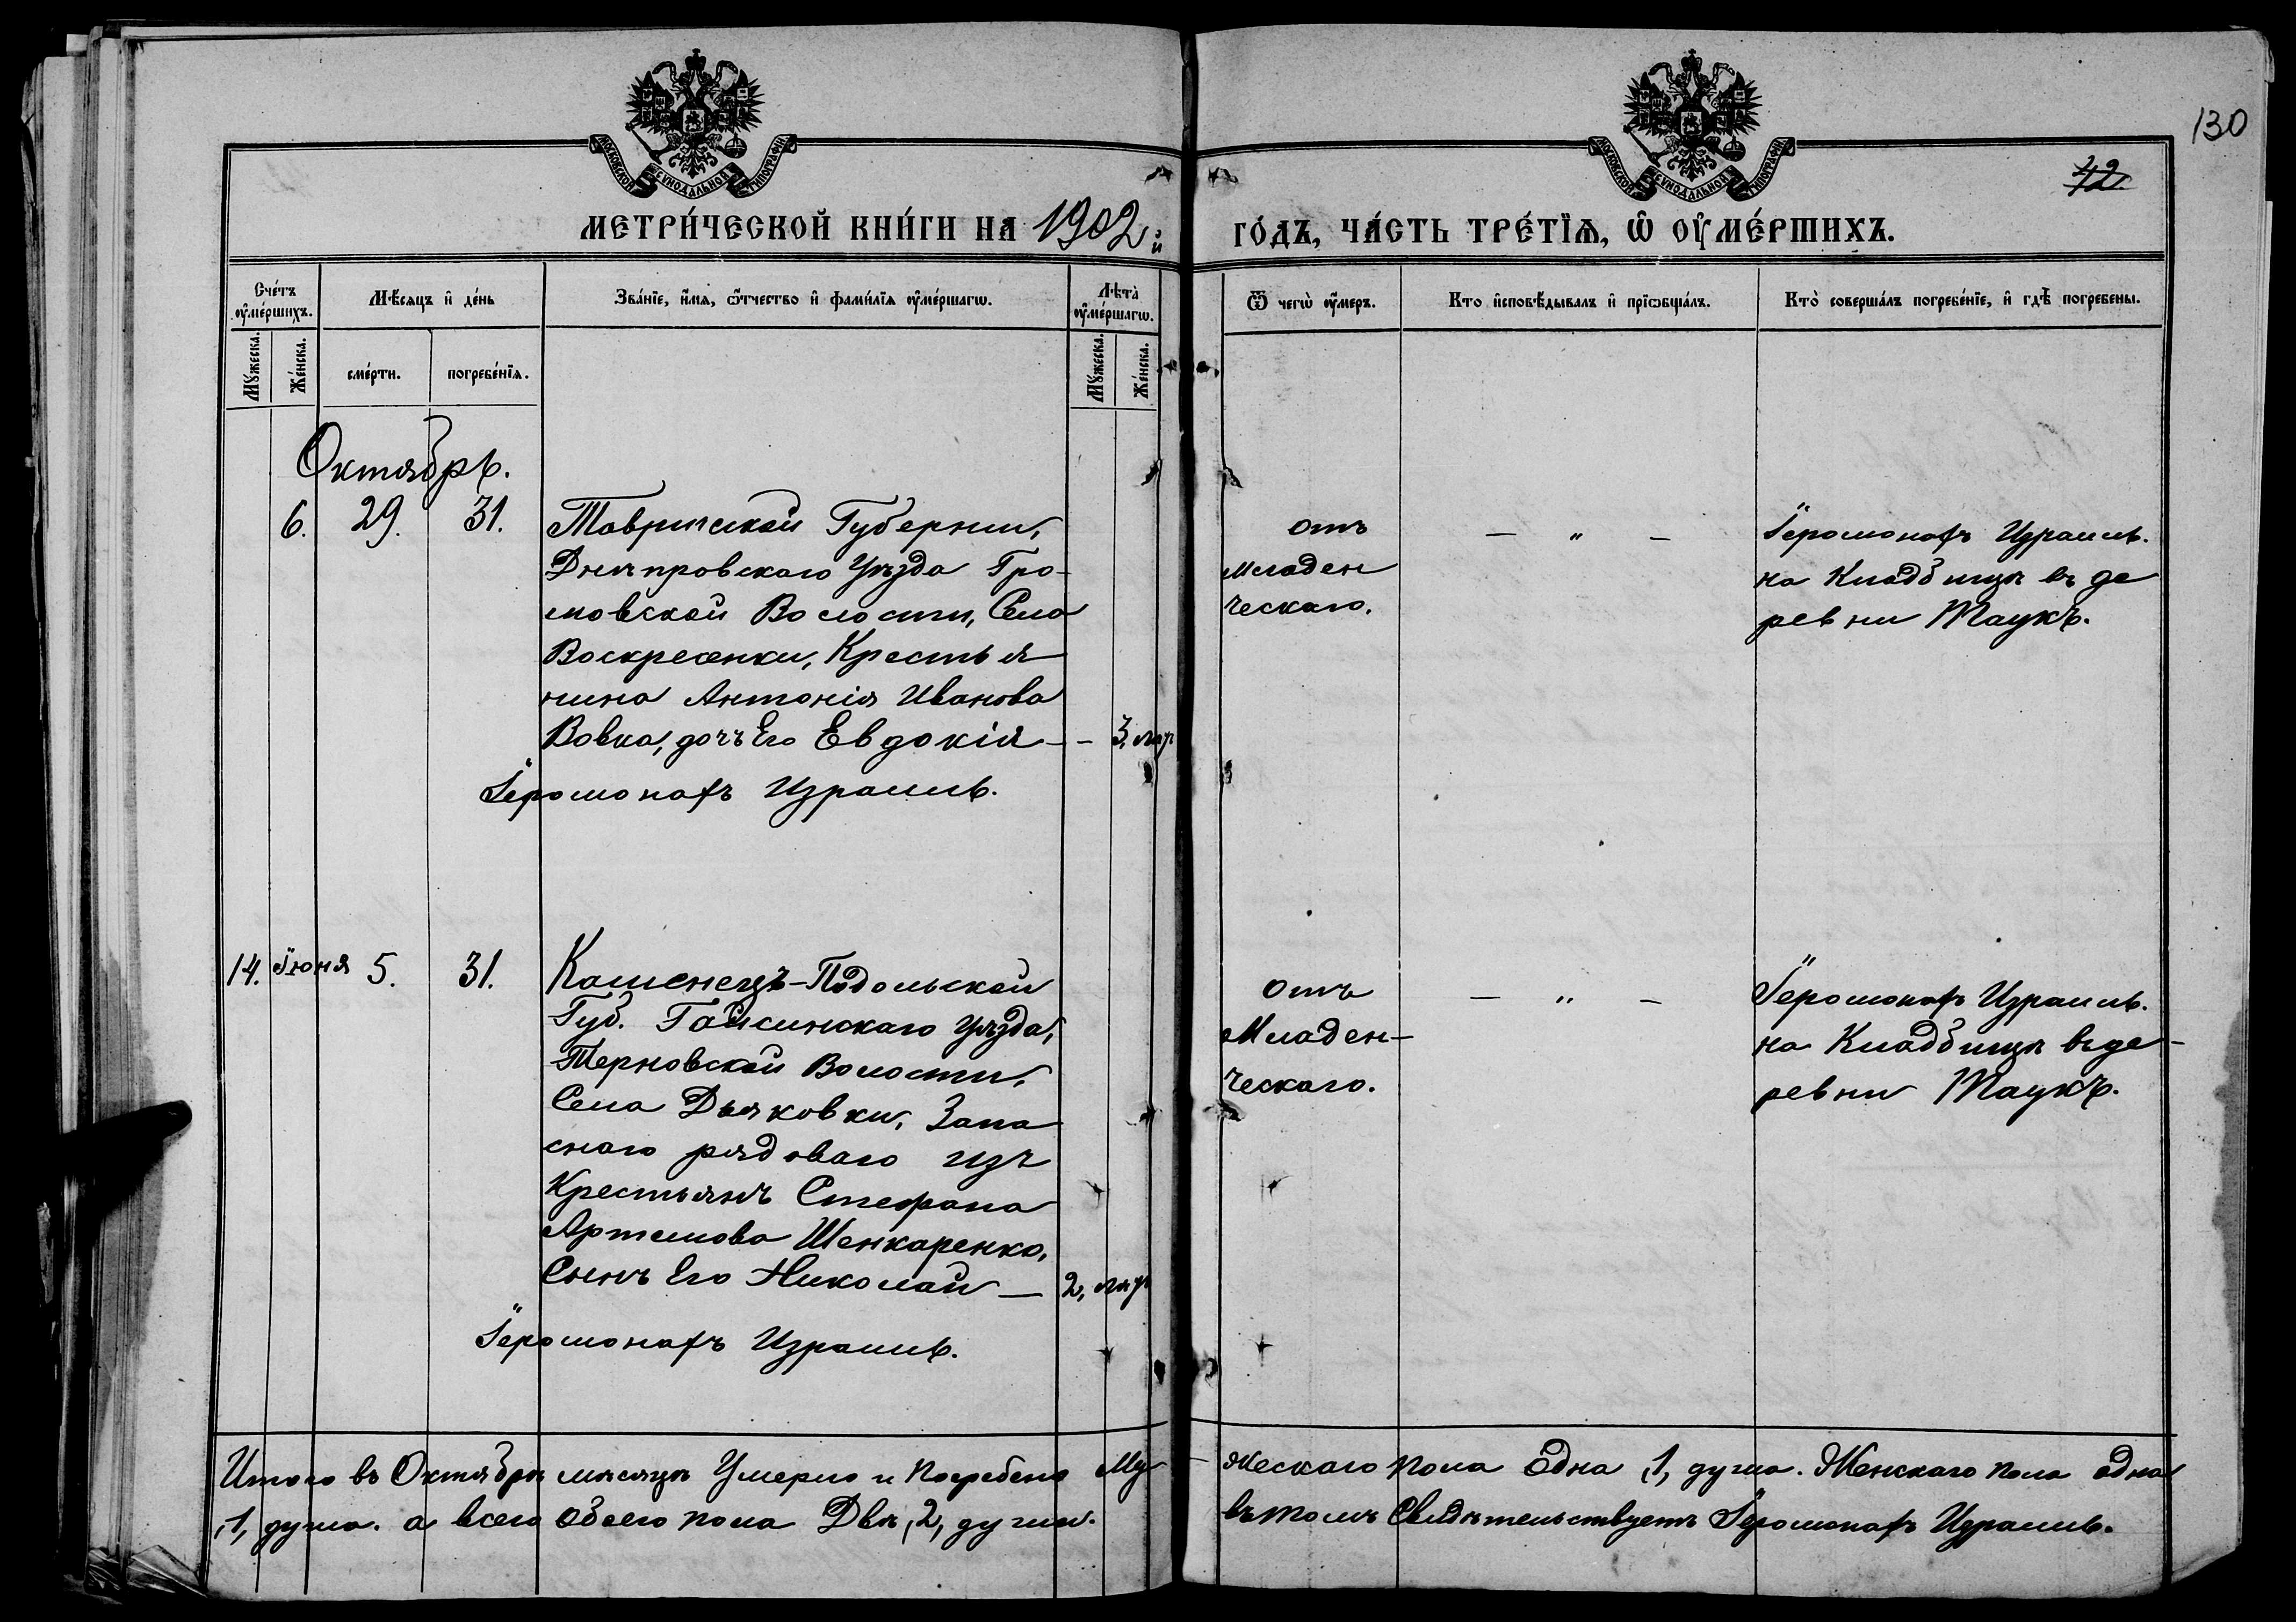 130
42
МОСКОВСКОЙ СѴНОДАЛЬНОЙ ТИПОГРАФІИ
МОСКОВСКОЙ СѴНОДАЛЬНОЙ ТИПОГРАФІИ
МЕТРИ́ЧЕСКОЙ КНИ́ГИ НА 1902й
ГО́ДЪ, ЧА́СТЬ ТРЕ́ТЇѦ, Ѡ҆ ОУ҆МЕ́РШИХЪ.
Сче́тъ оу҆ме́ршихъ.
Мꙋ́жеска.
Же́нска.
Мѣ́сяцъ и҆ де́нь
сме́рти.
погребе́нїѧ.
Зва́нїе, и҆́мѧ, ѻ҆́тчество и҆ фами́лїѧ оу҆ме́ршагѡ.
Лѣ́та оу҆ме́ршагѡ.
Мꙋ́жеска.
Же́нска.
Ѿ чегѡ̀ оу҆́меръ.
Кто и҆сповѣ́дывалъ и҆ прїѡбща́лъ.
Кто̀ соверша́лъ погребе́нїе, и҆ гдѣ̀ погребены.
Октябрь.
6. 29. 31.
Таврической Губернии,
Днѣпровскаго Уѣзда Гро-
мовской Волости, Села
Воскресенки, Крестья
нина Антонія Иванова
Вовка, дочъ Его Евдокія - - 3, мѣр
Іеромонахъ Израиль.
отъ
младен
ческаго.
— " —
Іеромонахъ Израиль.
на Кладбищѣ въ де
ревни Таукъ.
14. Іюня 5. 31.
Каменецъ-Подольской
Губ. Гайсинскаго Уѣзда,
Терновской Волости,
Села Дьяковки, Запа
снаго рядоваго изъ
Крестьянъ Стефана
Артемова Шенкаренко,
Сынъ Его Николай — 2, мѣр
Іеромонахъ Израиль.
Отъ
Младен-
ческаго.
— " —
Іеромонахъ Израиль.
на Кладбищѣ въ де-
ревни Таукъ.
Итого въ Октябрѣ мѣсяцѣ Умерло и погребено Му-
жескаго пола Одна ,1, душа. Женскаго пола одна
,1, душа. а всего обоего пола Двѣ, 2, души.
въ томъ Свидѣтельствуетъ Іеромонахъ Израиль.